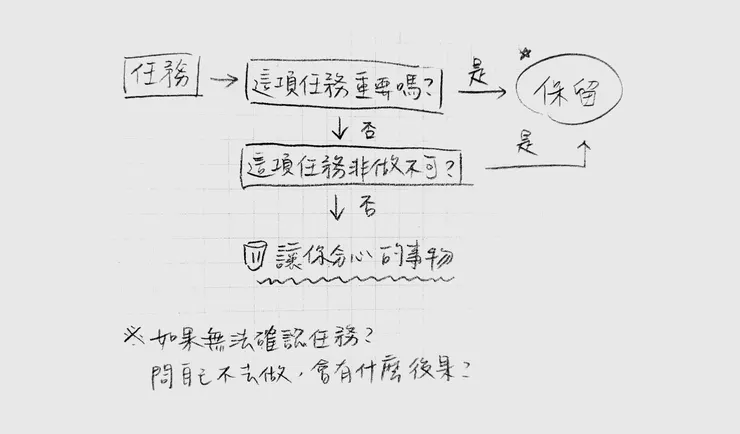 任務 → 這項任務重要嗎? 是 → 保留
↓ 否
這項任務非做不可? 是
↓ 否
讓你分心的事物
※如果無法確認任務?
問自己不去做,會有什麼後果?